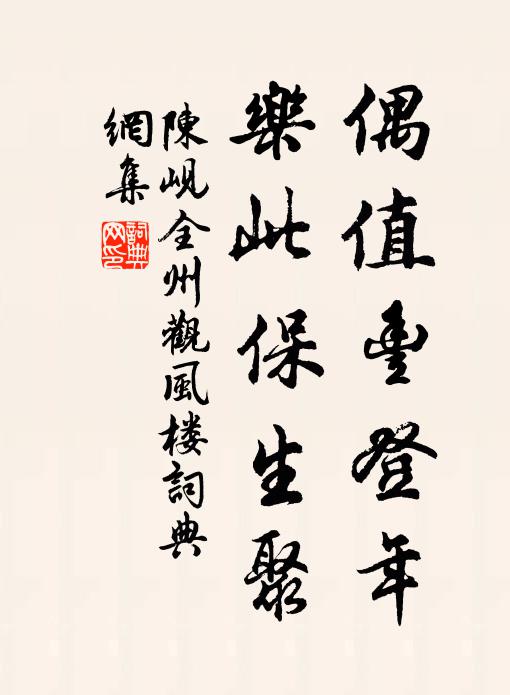 偶值豊登年
樂此保生聚
陳峴全州觀風楼詞典
網集
詞典
网印